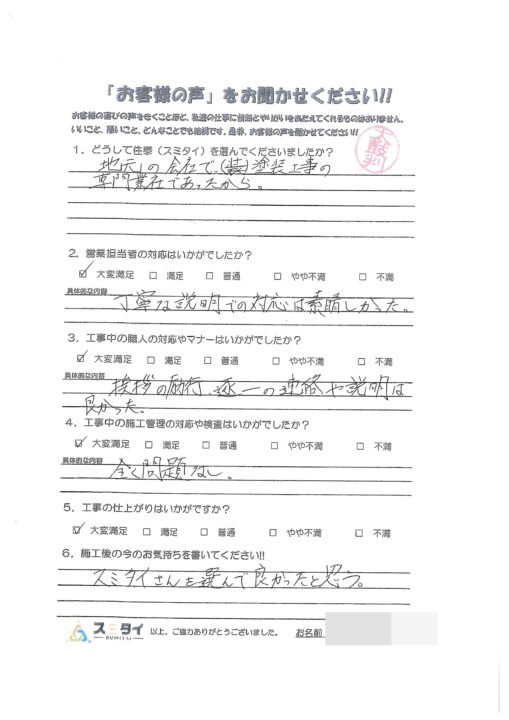 「お客様の声」をお聞かせください!!
お客様の喜びの声をきくことほど、私達の仕事に情熱とやりがいをあたえてくれるものはありません。
いいこと、悪いこと、どんなことでも結構です。是非、お客様の声を聞かせてください!!
1．どうして住泰（スミタイ）を選んでくださいましたか？
地元の会社で、(装)塗装工事の
専門業社であったから。
2．営業担当者の対応はいかがでしたか？
☑ 大変満足 □ 満足 □ 普通 □ やや不満 □ 不満
具体的な内容
丁寧な説明での対応は素晴しかった。
3．工事中の職人の対応やマナーはいかがでしたか？
☑ 大変満足 □ 満足 □ 普通 □ やや不満 □ 不満
具体的な内容
挨拶の励行、逐一の連絡や説明は
良かった。
4．工事中の施工管理の対応や検査はいかがでしたか？
☑ 大変満足 □ 満足 □ 普通 □ やや不満 □ 不満
具体的な内容
全く問題なし。
5．工事の仕上がりはいかがですか？
☑ 大変満足 □ 満足 □ 普通 □ やや不満 □ 不満
6．施工後の今のお気持ちを書いてください!!
スミタイさんを選んで良かったと思う。
スミタイ
SUMITAI
以上、ご協力ありがとうございました。 お名前